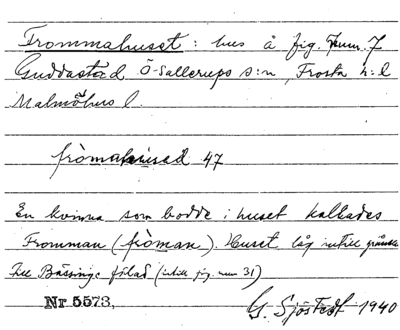 Frommahuset: hus å fig. num. 7
Guddastad Ö-Sallerups s:n, Frosta h:d
Malmöhus l.
fròmahusad 47
En kvinna som bodde i huset kallades
Fromman (fròman). Huset låg intill gränsen
till Bässinge (intill fig. num 31)
Nr 5573,
G. Sjöstedt 1940